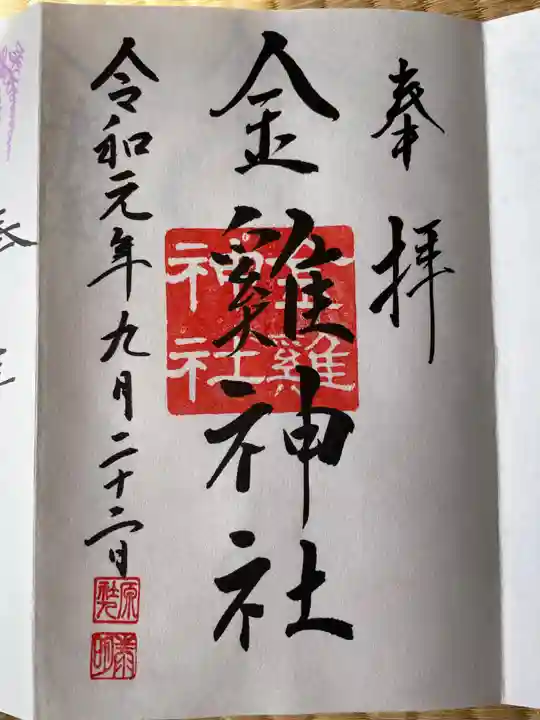 奉拝
金雞神社
金雞神社
令和元年九月二十二日